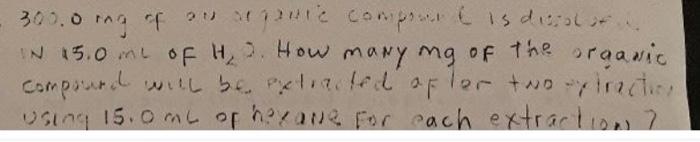 300.0 mg of an organic compound is dissolved
IN 15.0 mL OF H₂O. How maNy mg OF the organic
compound will be extracted after two extractions
using 15.0 mL of hexaNe For each extraction?